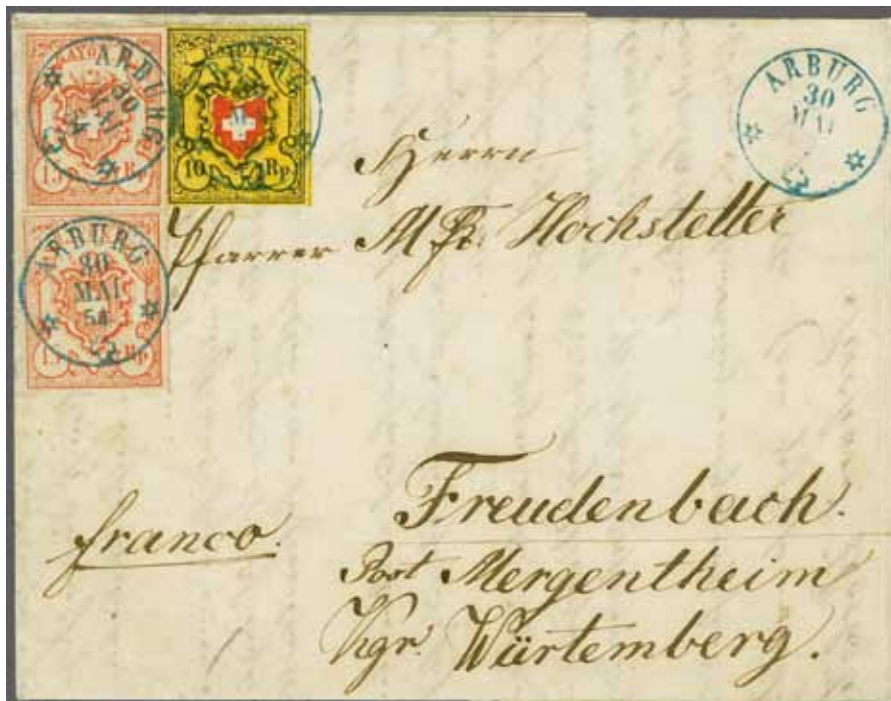 RAYON
ARBURG
30
MAI
54
15 Rp
10 Rp
ARBURG
30
MAI
54
15 Rp
ARBURG
30
MAI
Herrn
Pfarrer M Fr. Hochstetter
franco.
Freudenbach.
Post Mergentheim
Kgr. Würtemberg.